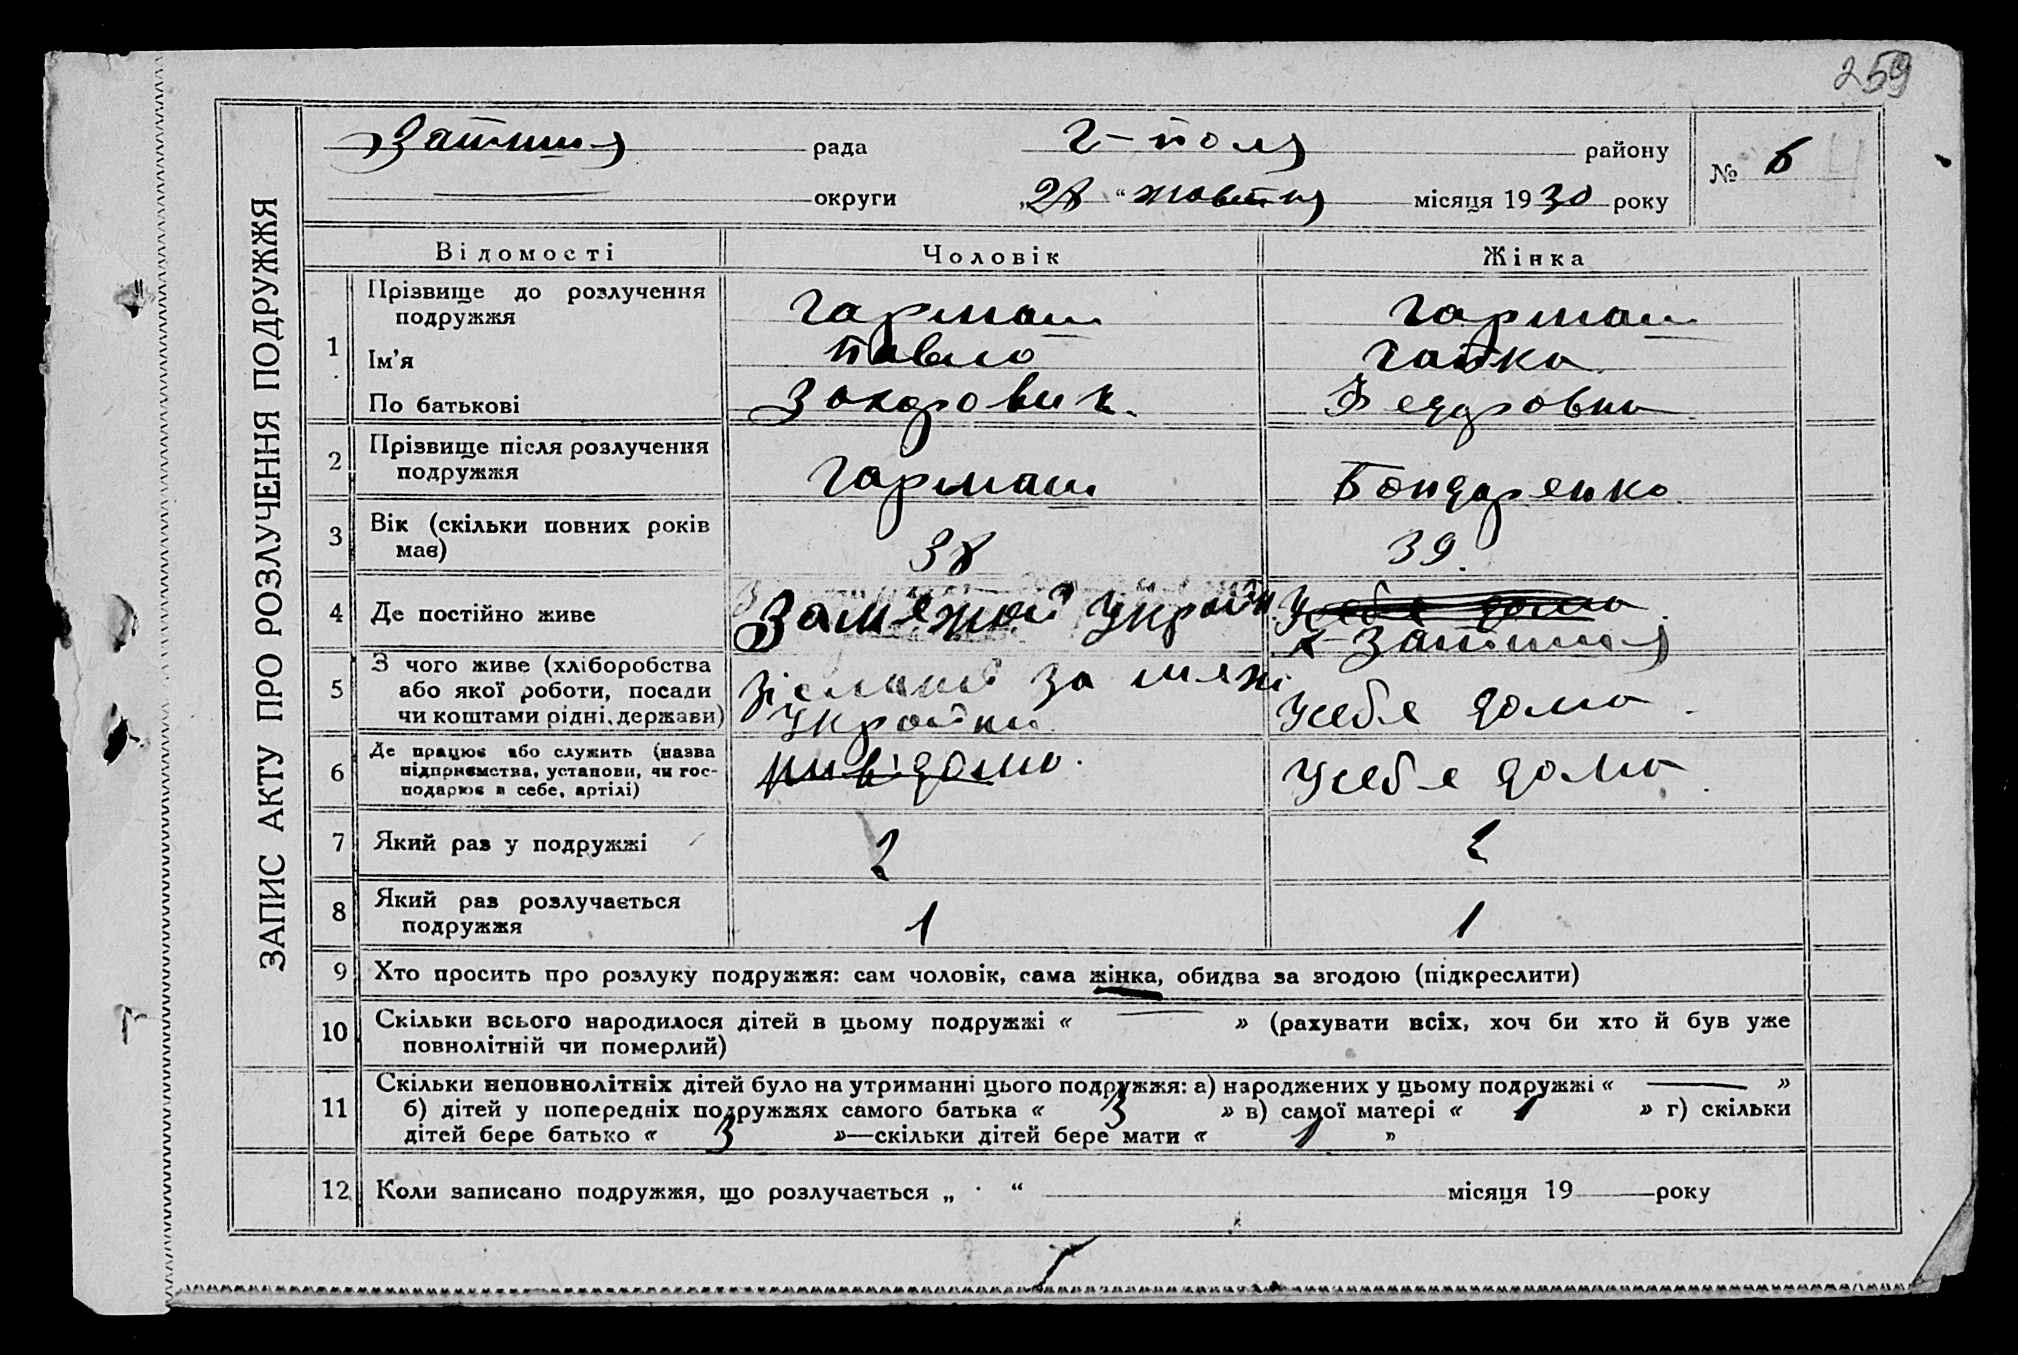 259
ЗАПИС АКТУ ПРО РОЗЛУЧЕННЯ ПОДРУЖЖЯ
Затишшя рада Г-поля району № 6
округи „28“ жовтня місяця 1930 року
Відомості Чоловік Жінка
1 Прізвище до розлучення подружжя Гармаш Гармаш
Ім'я Павло Гапка
По батькові Захарович. Федоровна
2 Прізвище після розлучення подружжя Гармаш Бондаренко
3 Вік (скільки повних років має) 38 39.
4 Де постійно живе Замежой Україн. У себе дома
х Затишшя
5 З чого живе (хліборобства або якої роботи, посади чи коштами рідні, держави) Зісланий за межі України У себе дома.
6 Де працює або служить (назва підприємства, установи, чи господарює в себе, артілі) невідомо. У себе дома.
7 Який раз у подружжі 2 2
8 Який раз розлучається подружжя 1 1
9 Хто просить про розлуку подружжя: сам чоловік, сама жінка, обидва за згодою (підкреслити)
10 Скільки всього народилося дітей в цьому подружжі « — » (рахувати всіх, хоч би хто й був уже
повнолітній чи померлий)
11 Скільки неповнолітніх дітей було на утриманні цього подружжя: а) народжених у цьому подружжі « — »
б) дітей у попередніх подружжях самого батька « 3 » в) самої матері « 1 » г) скільки
дітей бере батько « 3 »—скільки дітей бере мати « 1 »
12 Коли записано подружжя, що розлучається „ “ місяця 19 року